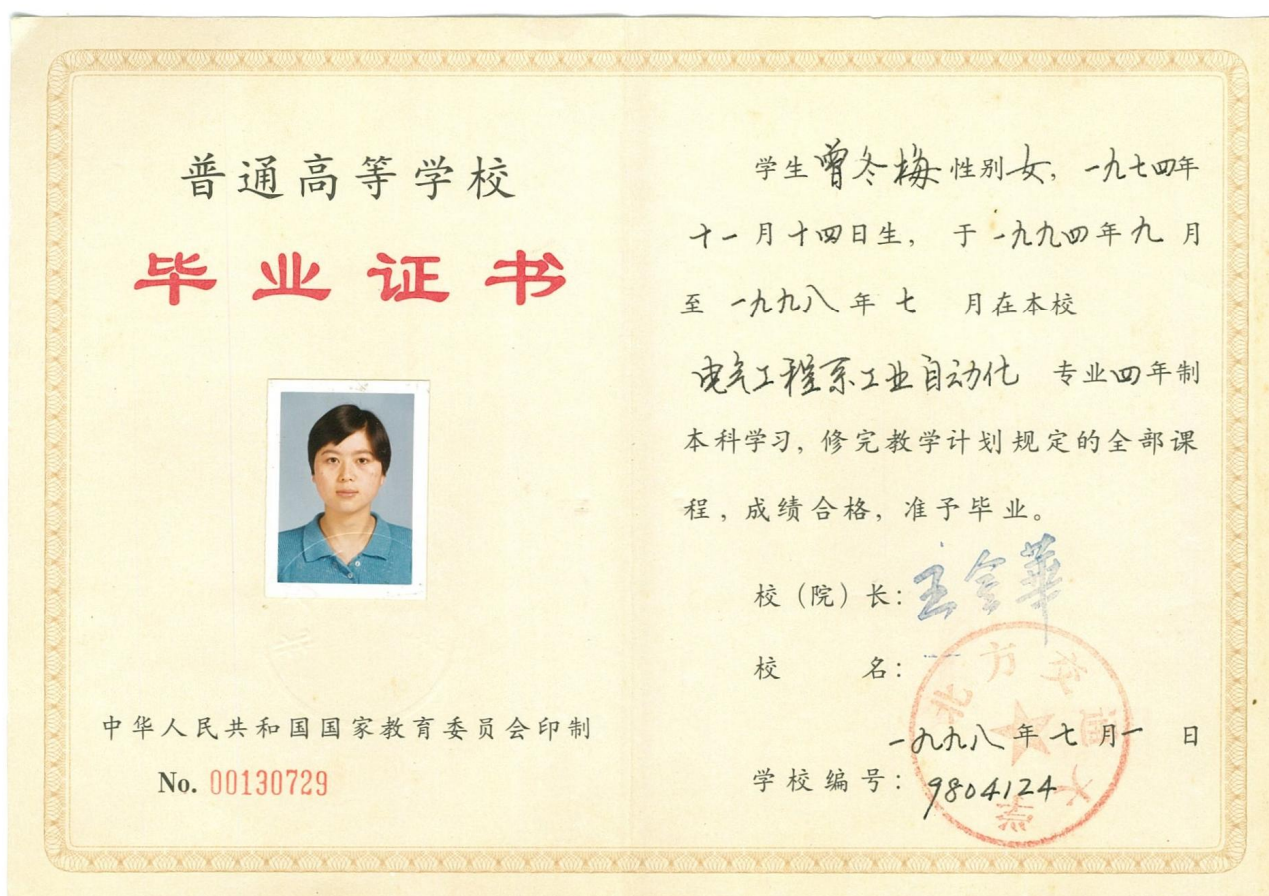 普通高等学校
毕业证书
中华人民共和国国家教育委员会印制
No. 00130729
学生曾冬梅性别女，一九七四年
十一月十四日生，于一九九四年九月
至一九九八年七月在本校
电气工程系工业自动化专业四年制
本科学习，修完教学计划规定的全部课
程，成绩合格，准予毕业。
校（院）长：王金華
校名：
北方交通大学
一九九八年七月一日
学校编号：9804124